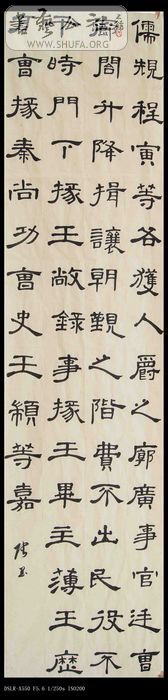 儒規程寅等各獲人爵之廓廣事官廷曹
廊閤升降揖讓朝覲之階費不出民役不
干時門下掾王敞錄事掾王畢主薄王歷
戶曹掾秦尚功曹史王顓等嘉
WWW.SHUFA.ORG
DSLR-A550 F5.6 1/250s ISO200